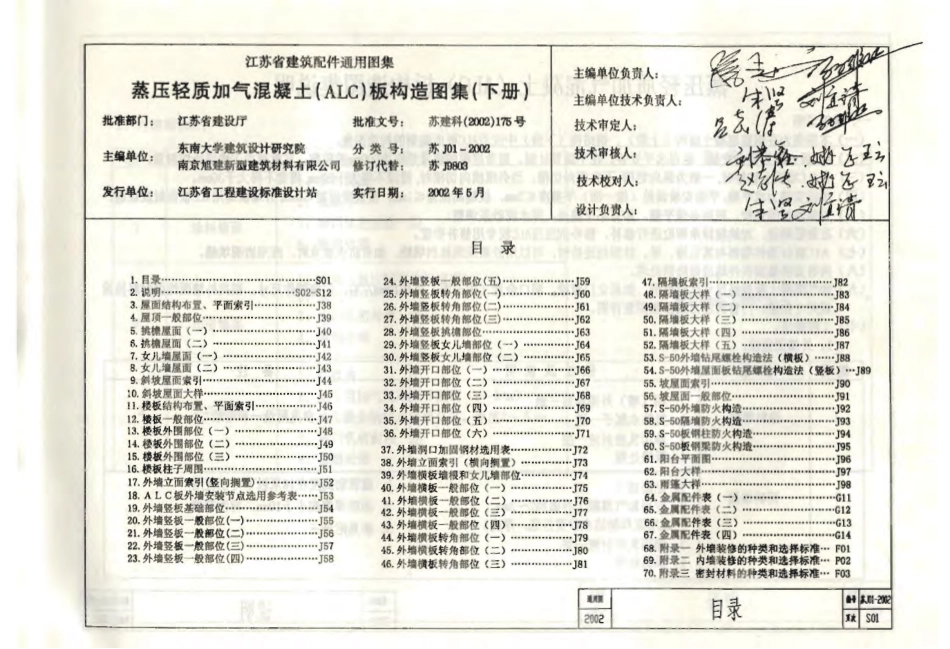 江苏省建筑配件通用图集
蒸压轻质加气混凝土(ALC)板构造图集(下册)
批准部门： 江苏省建设厅 批准文号： 苏建科(2002)175号
主编单位： 东南大学建筑设计研究院 分 类 号： 苏 J01-2002
南京旭建新型建筑材料有限公司 修订代替： 苏 J9803
发行单位： 江苏省工程建设标准设计站 实行日期： 2002年5月
主编单位负责人：
主编单位技术负责人：
技术审定人：
技术审核人：
技术校对人：
设计负责人：
目 录
1. 目录……S01
2. 说明……S02-S12
3. 屋面结构布置、平面索引……J38
4. 屋顶一般部位……J39
5. 挑檐屋面（一）……J40
6. 挑檐屋面（二）……J41
7. 女儿墙屋面（一）……J42
8. 女儿墙屋面（二）……J43
9. 斜坡屋面索引……J44
10. 斜坡屋面大样……J45
11. 楼板结构布置、平面索引……J46
12. 楼板一般部位……J47
13. 楼板外围部位（一）……J48
14. 楼板外围部位（二）……J49
15. 楼板外围部位（三）……J50
16. 楼板柱子周围……J51
17. 外墙立面索引(竖向搁置)……J52
18. ALC板外墙安装节点选用参考表……J53
19. 外墙竖板基础部位……J54
20. 外墙竖板一般部位(一)……J55
21. 外墙竖板一般部位(二)……J56
22. 外墙竖板一般部位(三)……J57
23. 外墙竖板一般部位(四)……J58
24. 外墙竖板一般部位(五)……J59
25. 外墙竖板转角部位(一)……J60
26. 外墙竖板转角部位(二)……J61
27. 外墙竖板转角部位(三)……J62
28. 外墙竖板挑檐部位……J63
29. 外墙竖板女儿墙部位（一）……J64
30. 外墙竖板女儿墙部位（二）……J65
31. 外墙开口部位（一）……J66
32. 外墙开口部位（二）……J67
33. 外墙开口部位（三）……J68
34. 外墙开口部位（四）……J69
35. 外墙开口部位（五）……J70
36. 外墙开口部位（六）……J71
37. 外墙洞口加固钢材选用表……J72
38. 外墙立面索引（横向搁置）……J73
39. 外墙横板墙根和女儿墙部位……J74
40. 外墙横板一般部位（一）……J75
41. 外墙横板一般部位（二）……J76
42. 外墙横板一般部位（三）……J77
43. 外墙横板一般部位（四）……J78
44. 外墙横板转角部位（一）……J79
45. 外墙横板转角部位（二）……J80
46. 外墙横板转角部位（三）……J81
47. 隔墙板索引……J82
48. 隔墙板大样（一）……J83
49. 隔墙板大样（二）……J84
50. 隔墙板大样（三）……J85
51. 隔墙板大样（四）……J86
52. 隔墙板大样（五）……J87
53. S-50外墙钻尾螺栓构造法（横板）……J88
54. S-50外墙屋面板钻尾螺栓构造法（竖板）…J89
55. 坡屋面索引……J90
56. 坡屋面一般部位……J91
57. S-50外墙防火构造……J92
58. S-50隔墙防火构造……J93
59. S-50板钢柱防火构造……J94
60. S-50板钢梁防火构造……J95
61. 阳台平面图……J96
62. 阳台大样……J97
63. 雨蓬大样……J98
64. 金属配件表（一）……G11
65. 金属配件表（二）……G12
66. 金属配件表（三）……G13
67. 金属配件表（四）……G14
68. 附录一 外墙装修的种类和选择标准…F01
69. 附录二 内墙装修的种类和选择标准…F02
70. 附录三 密封材料的种类和选择标准…F03
通用图 目录 编号 苏J01-2002
2002 页次 S01